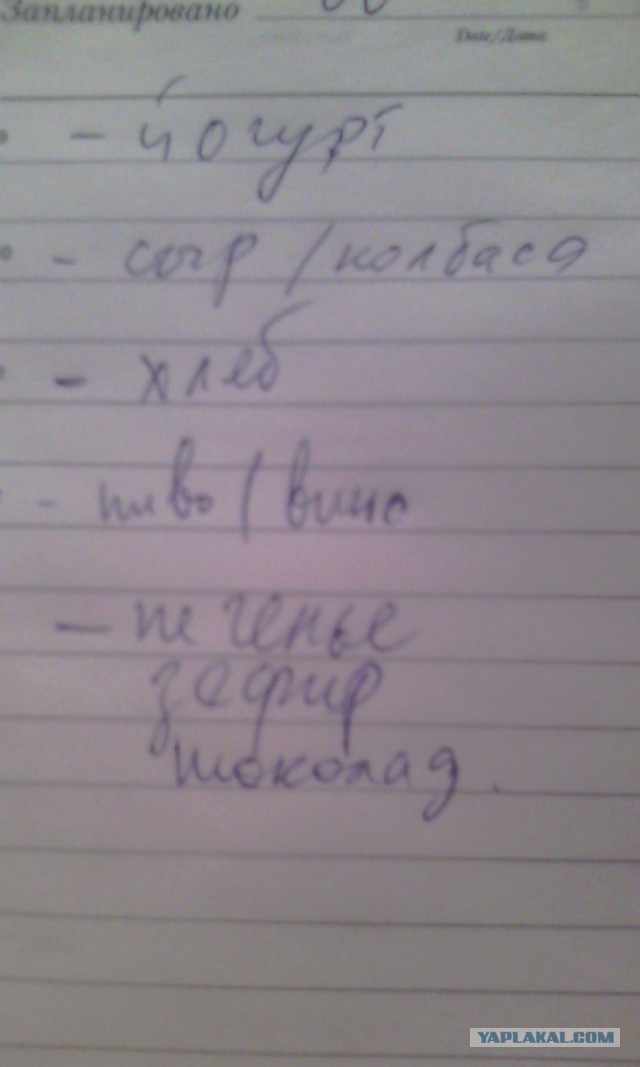 Запланировано
Date/Дата
- йогурт
- сыр / колбаса
- хлеб
- пиво / вино
- печенье
зефир
шоколад.
YAPLAKAL.COM